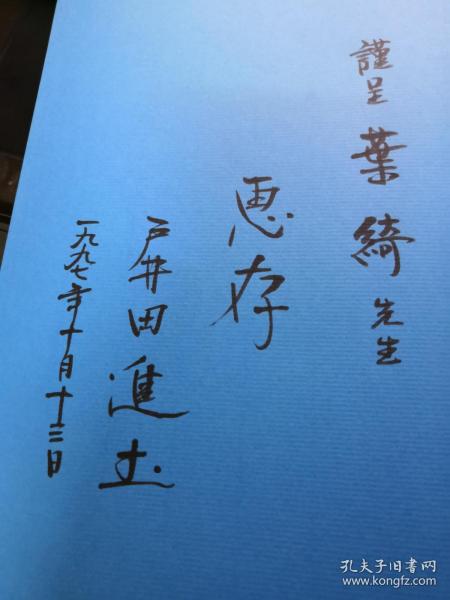 謹呈 葉綺 先生
惠存
戸井田進𡈽
一九九七年十月十三日
孔夫子旧书网
www.kongfz.com